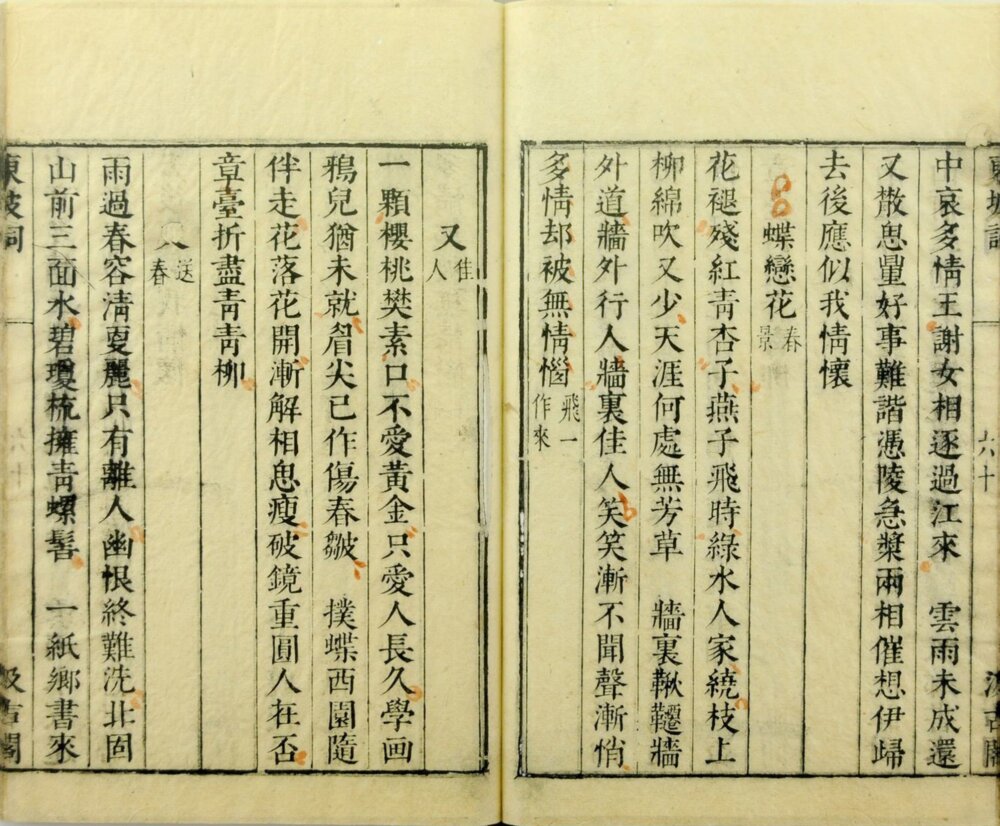 東坡詞 六十 汲古閣
中哀多情王謝女相逐過江來 雲雨未成還
又散思量好事難諧憑陵急槳兩相催想伊歸
去後應似我情懷
蝶戀花 春景
花褪殘紅青杏子燕子飛時綠水人家繞枝上
柳綿吹又少天涯何處無芳草 牆裏鞦韆牆
外道牆外行人牆裏佳人笑笑漸不聞聲漸悄
多情却被無情惱 飛一作來
又 佳人
一顆櫻桃樊素口不愛黃金只愛人長久學画
鴉兒猶未就眉尖已作傷春皺 撲蝶西園隨
伴走花落花開漸解相思瘦破鏡重圓人在否
章臺折盡青青柳
送春
雨過春容清更麗只有離人幽恨終難洗北固
山前三面水碧瓊梳擁青螺髻 一紙鄉書來
東坡詞 汲古閣